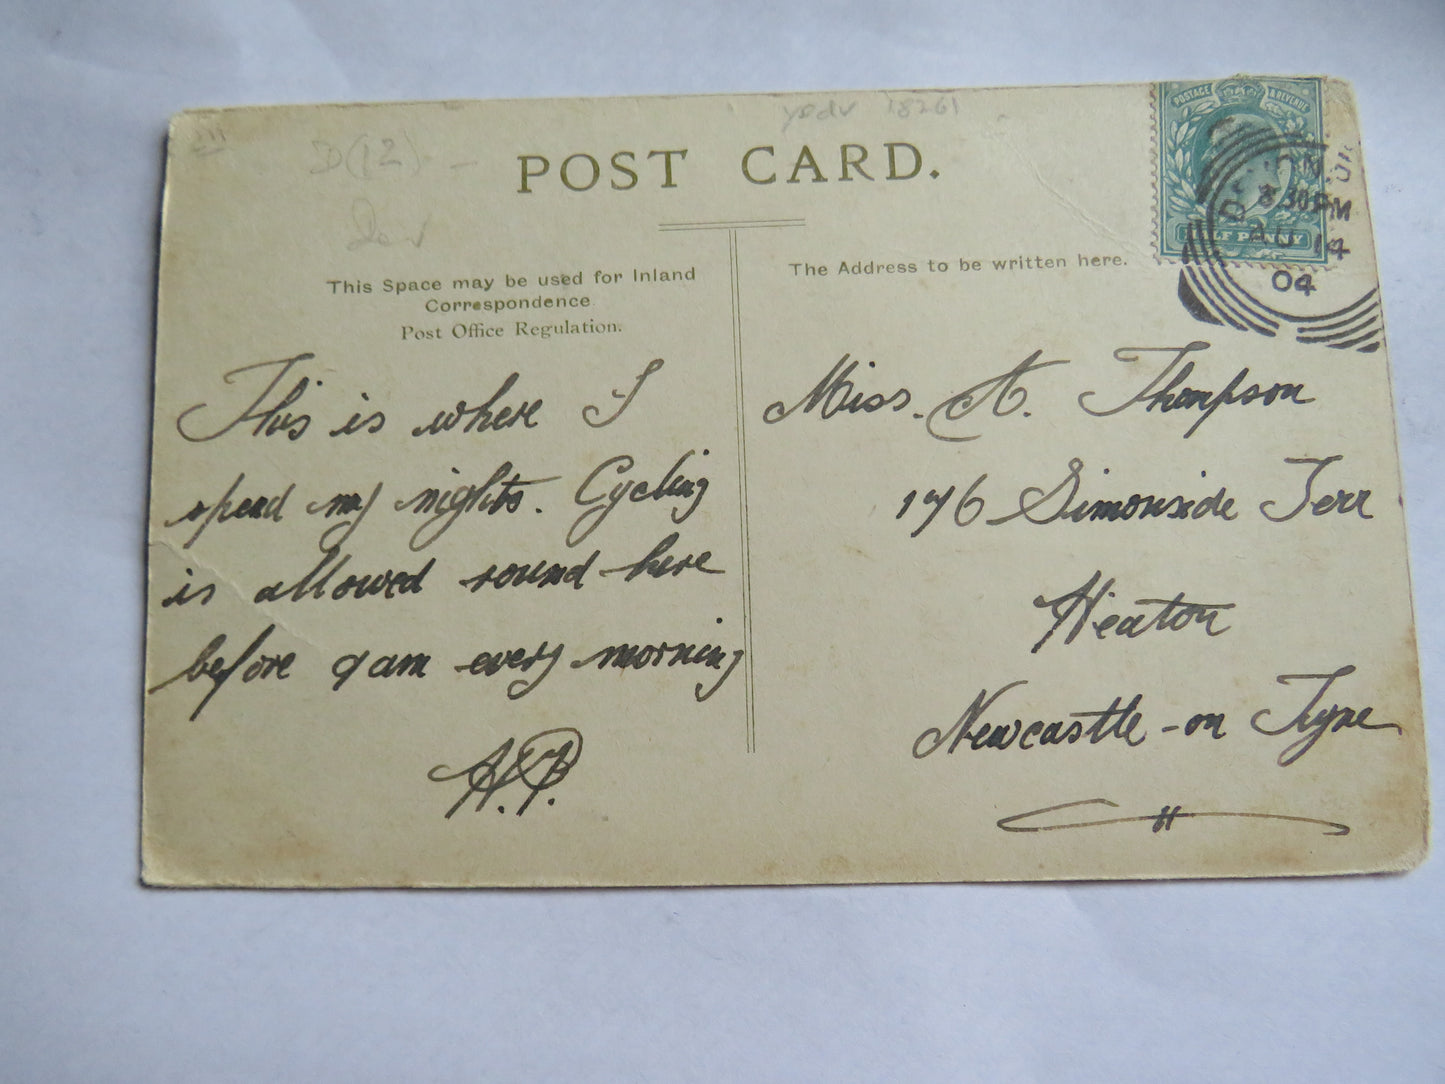 D(12)
18261
POST CARD.
POSTAGE & REVENUE
HALF PENNY
8.30PM
AU 14
04
This Space may be used for Inland
Correspondence.
Post Office Regulation.
The Address to be written here.
This is where I
spend my nights. Cycling
is allowed round here
before 9am every morning
H.P.
Miss. A. Thompson
176 Simonside Terr
Heaton
Newcastle-on Tyne